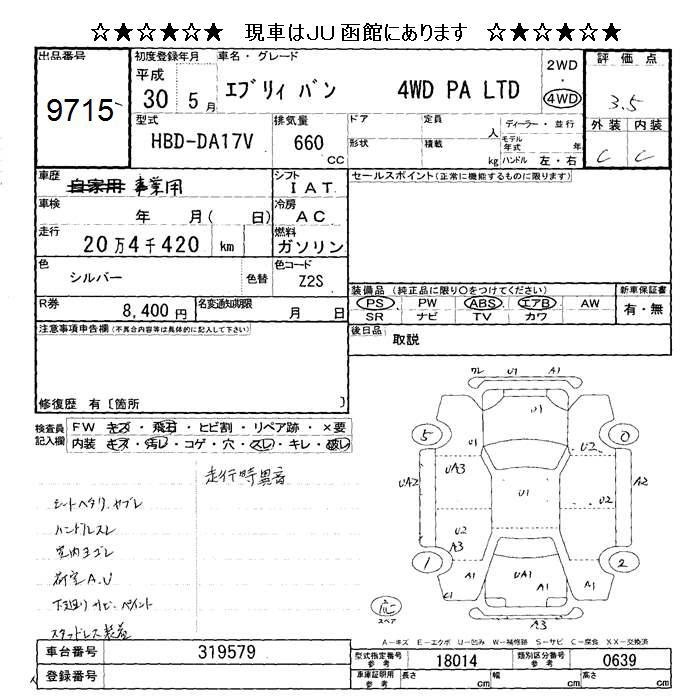 ☆★☆★☆★ 現車はJU函館にあります ☆★☆★☆★
出品番号
9715
初度登録年月
平成
30 5月
車名・グレード
エブリイ バン 4WD PA LTD
2WD
・
4WD
評価点
3.5
外装 内装
C C
型式
HBD-DA17V
排気量
660
CC
ドア
定員
人
形状
積載
kg
ディーラー・並行
モデル年式 年
ハンドル 左・右
車歴
自家用 事業用
シフト
IAT
車検
年 月( 日)
冷房
AC
走行
20万4千420 km
燃料
ガソリン
色
シルバー
色替
色コード
Z2S
R券
8,400円
名変通知期限
月 日
セールスポイント(正常に機能するものに限ります)
装備品(純正品に限り○をつけてください)
PS PW ABS エアB AW
SR ナビ TV カワ
新車保証書
有・無
後日品
取説
注意事項申告欄(不具合内容等は具体的に記入して下さい)
修復歴 有〔箇所 〕
検査員記入欄
FW キズ・飛石・ヒビ割・リペア跡・×要
内装 キズ・汚レ・コゲ・穴・スレ・キレ・破レ
走行時異音
シートヘタリ、ヤブレ
ハンドルスレ
室内ヨゴレ
荷室A.U
下廻りサビ・ペイント
スタッドレス装着
ワレ U1 A1
U1
5
0
U1
U2
UA2
UA3
U1
A2
U2
U2
A3
1
2
A1
UA1
A1
C1
A1
A3
スペア
A−キズ E−エクボ U−凹み W−補修跡 S−サビ C−腐食 XX−交換済
車台番号
319579
登録番号
型式指定番号
参考
18014
類別区分番号
参考
0639
車庫証明用
参考
長さ cm
幅 cm
高さ cm